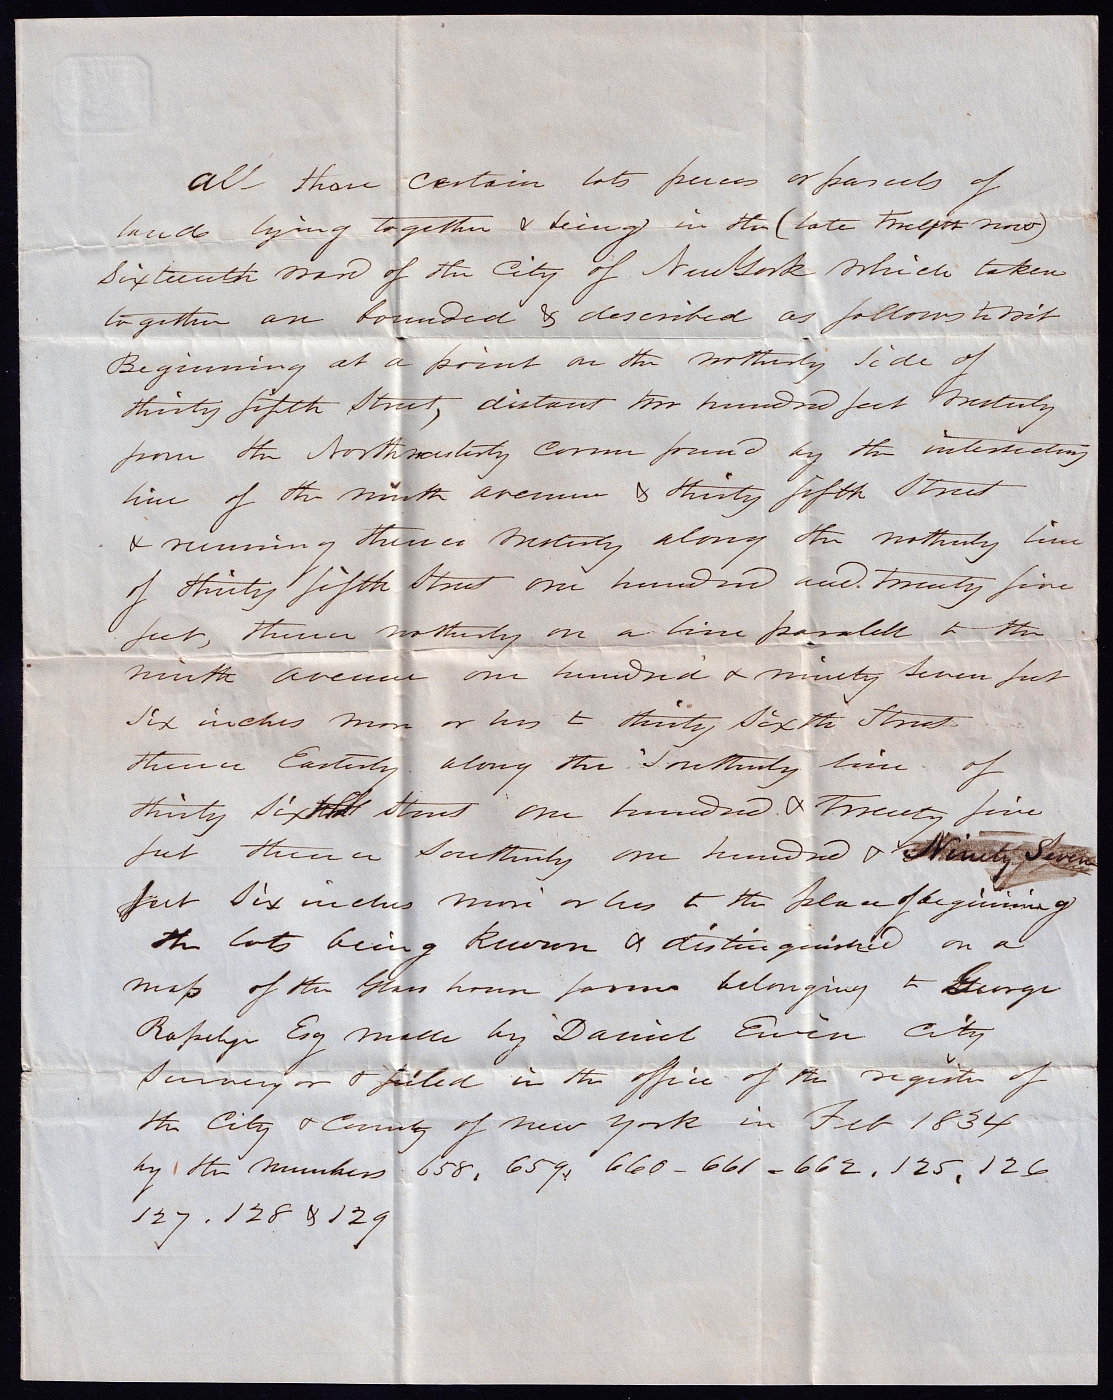 All those certain lots pieces or parcels of
land lying together & being in the (late twelfth now)
Sixteenth ward of the City of New York which taken
together are bounded & described as follows to wit
Beginning at a point on the northerly side of
thirty fifth Street, distant two hundred feet westerly
from the Northwesterly corner found by the intersecting
line of the ninth avenue & thirty fifth Street
& running thence westerly along the northerly line
of thirty fifth Street one hundred and twenty five
feet, thence northerly on a line paralell to the
ninth avenue one hundred & ninety seven feet
Six inches more or less to thirty Sixth Street
thence Easterly along the Southerly line of
thirty Sixth Street one hundred & Twenty five
feet thence Southerly one hundred & Ninety Seven
feet Six inches more or less to the place of beginning
the lots being known & distinguished on a
map of the Glass house farm belonging to George
Rapelye Esq made by Daniel Ewen City
Surveyor & filed in the office of the register of
the City & County of new York in Feb 1834
by the numbers 658, 659, 660 - 661 - 662. 125, 126
127. 128 & 129